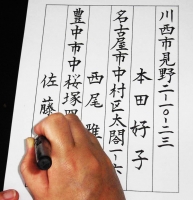 川西市見野二-二〇-二三
本田好子
名古屋市中村区太閤一-六
西尾雅
豊中市中桜塚四
佐藤